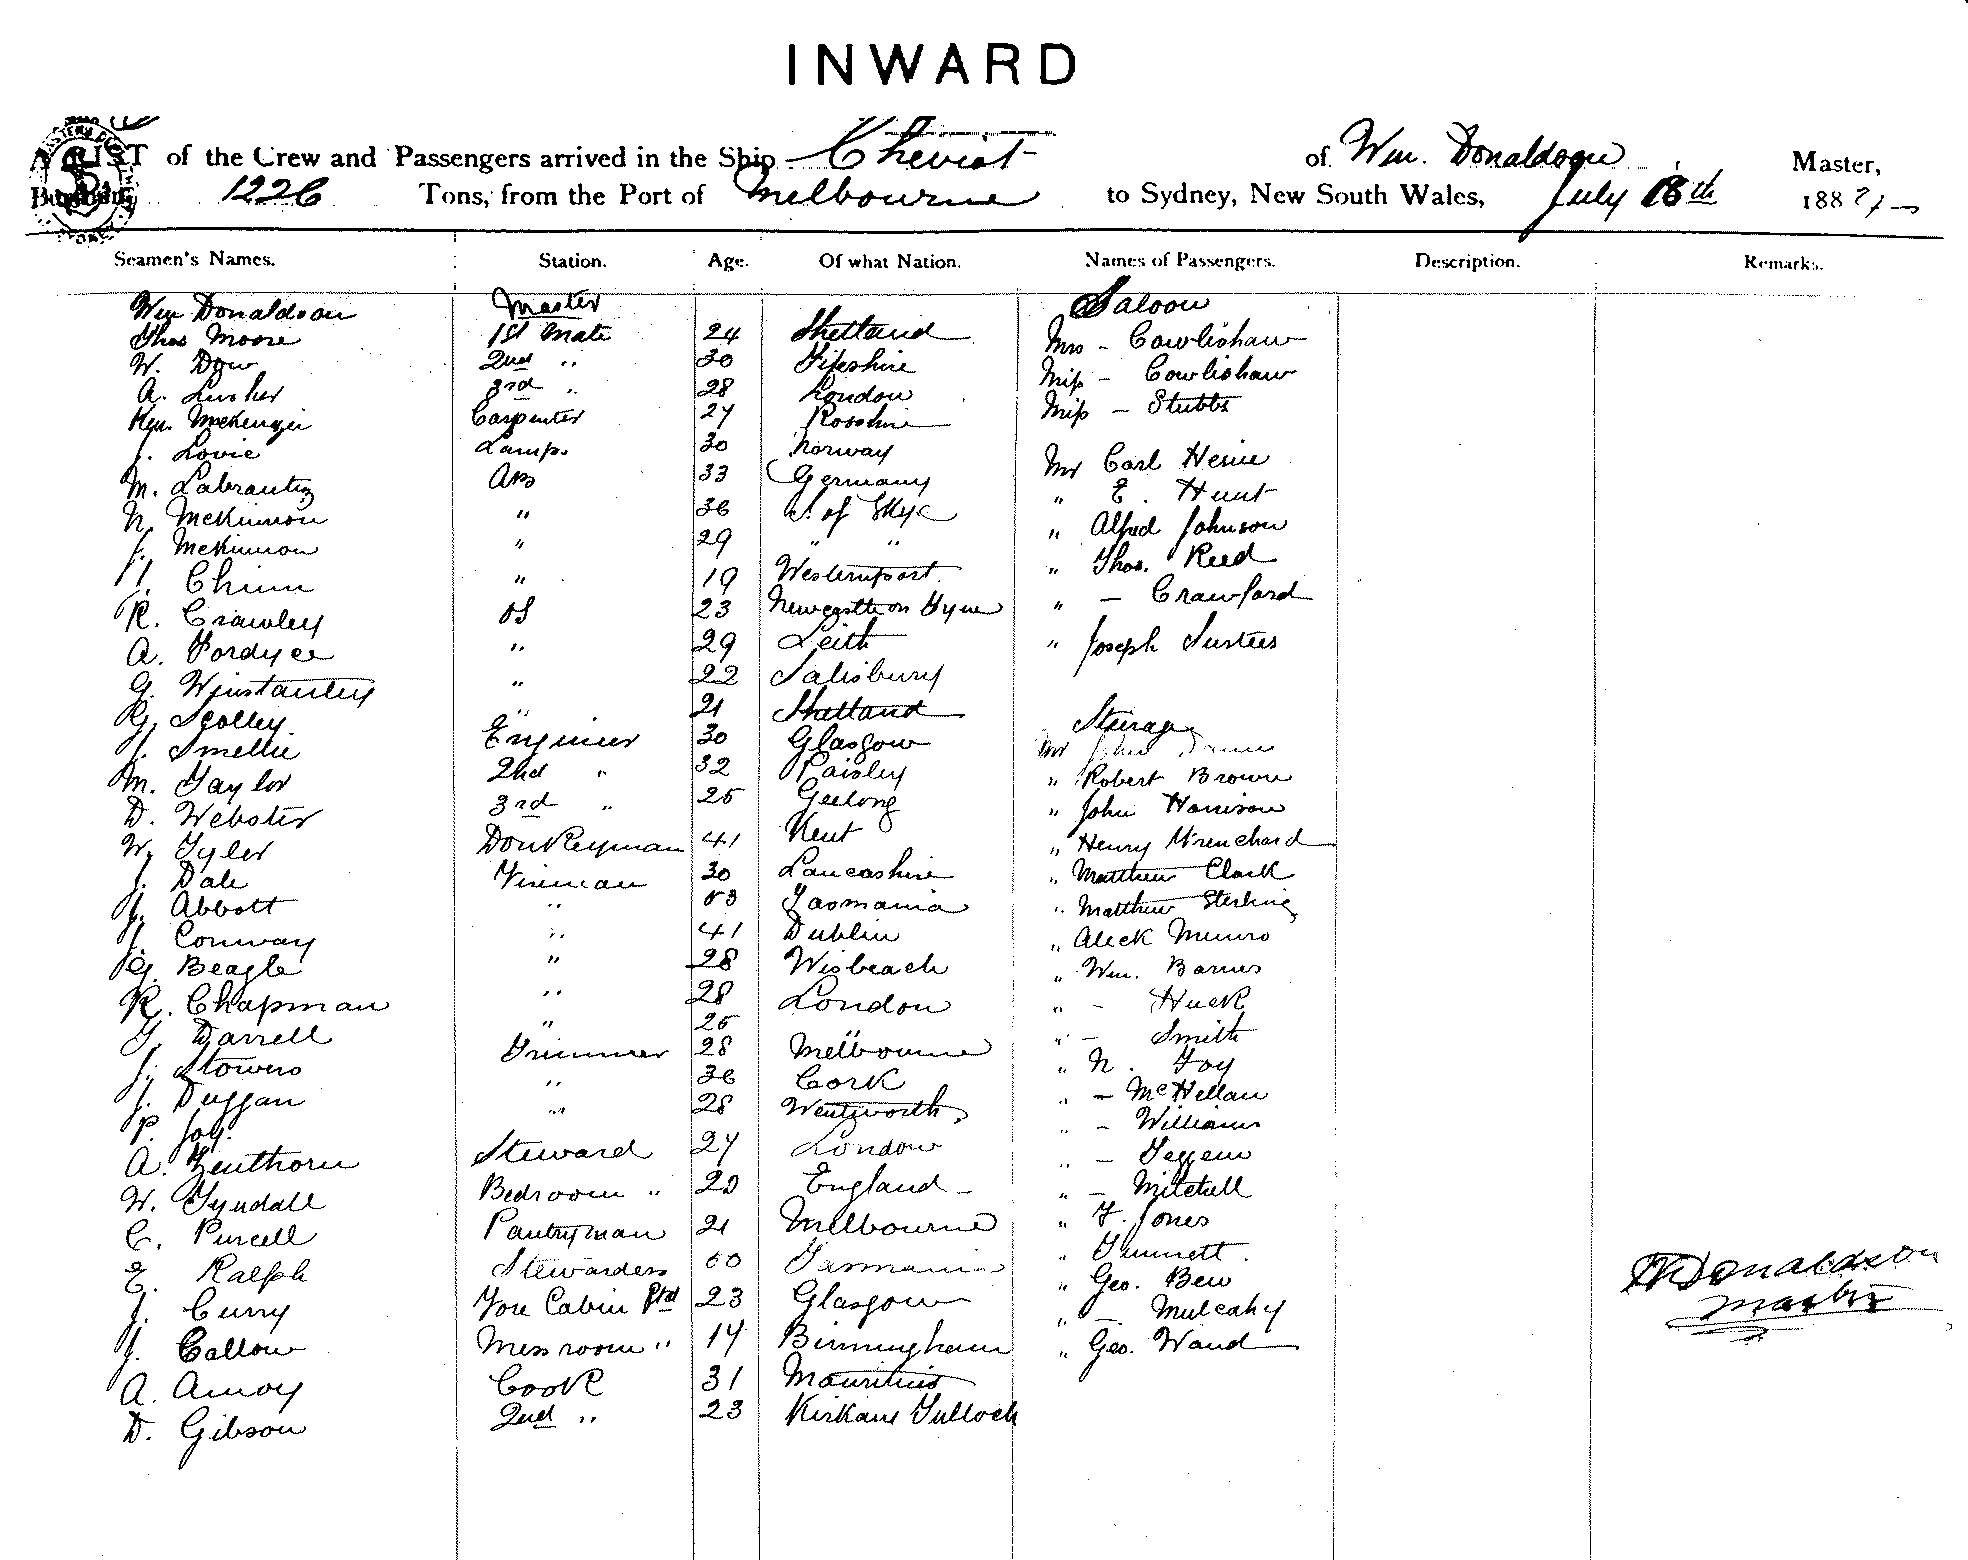 INWARD
LIST of the Crew and Passengers arrived in the Ship Cheviot of Wm. Donaldson Master,
1226 Tons, from the Port of Melbourne to Sydney, New South Wales, July 18th 188
Seamen's Names. Station. Age. Of what Nation. Names of Passengers. Description. Remarks.
Wm Donaldson Master Saloon
Thos Moore 1st Mate 24 Shetland Mrs - Cowlishaw
W. Dow 2nd " 30 Fifeshire Miss - Cowlishaw
A. Lusher 3rd " 28 London Miss - Stubbs
Ken. McKenzie Carpenter 27 Rosshire
J. Lovie Lamps 30 Norway Mr Carl Heine
M. Labrantz AB 33 Germany " E. Hunt
N. McKinnon " 36 I. of Skye " Alfred Johnson
J. McKinnon " 29 " " " Thos. Reed
J. Chinn " 19 Westernport " - Crawford
R. Crawley OS 23 Newcastle on Tyne
A. Fordyce " 29 Leith " Joseph
G. Winstanley " 22 Salisbury
G. Scolley " 21 Shetland Steerage
J. Smellie Engineer 30 Glasgow Mr John
M. Taylor 2nd " 32 Paisley " Robert Brown
D. Webster 3rd " 25 Geelong " John Harrison
W. Tyler Donkeyman 41 Kent " Henry Wrenchard
J. Dale Fireman 30 Lancashire " Matthew Clark
J. Abbott " 53 Tasmania " Matthew Sterling
J. Conway " 41 Dublin " Aleck Munro
G. Beagle " 28 Wisbeach " Wm. Barnes
R. Chapman " 28 London " - Huck
Darrell " 25 " - Smith
J. Stowers Trimmer 28 Melbourne " N. Foy
J. Duggan " 36 Cork " - McHellan
P. Joy. " 28 Wentworth " - Williams
A. Steward 27 London " -
W. Tyndall Bedroom " 20 England - " - Mitchell
C. Purcell Pantryman 21 Melbourne " F. Jones
E. Ralph Stewardess 50 Tasmania "
J. Curry Fore Cabin Std 23 Glasgow " Geo. Bew
J. Callow Messroom " 17 Birmingham " - Mulcahy
A. Amoy Cook 31 Mauritius " Geo. Wand
D. Gibson 2nd " 23 Tulloch
W Donaldson
Master